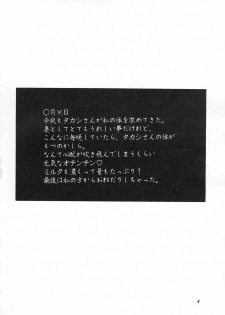 ○月×日
今夜もタカシさんが私の体を求めてきた。
妻としてとてもうれしい事だけれど、
こんなに毎晩していたら、タカシさんの体が
もつのかしら。
なんて心配が吹き飛んでしまうくらい
元気なオチンチン♡
ミルクも濃くって量もたっぷり!
最後は私の方からおねだりしちゃった。
4